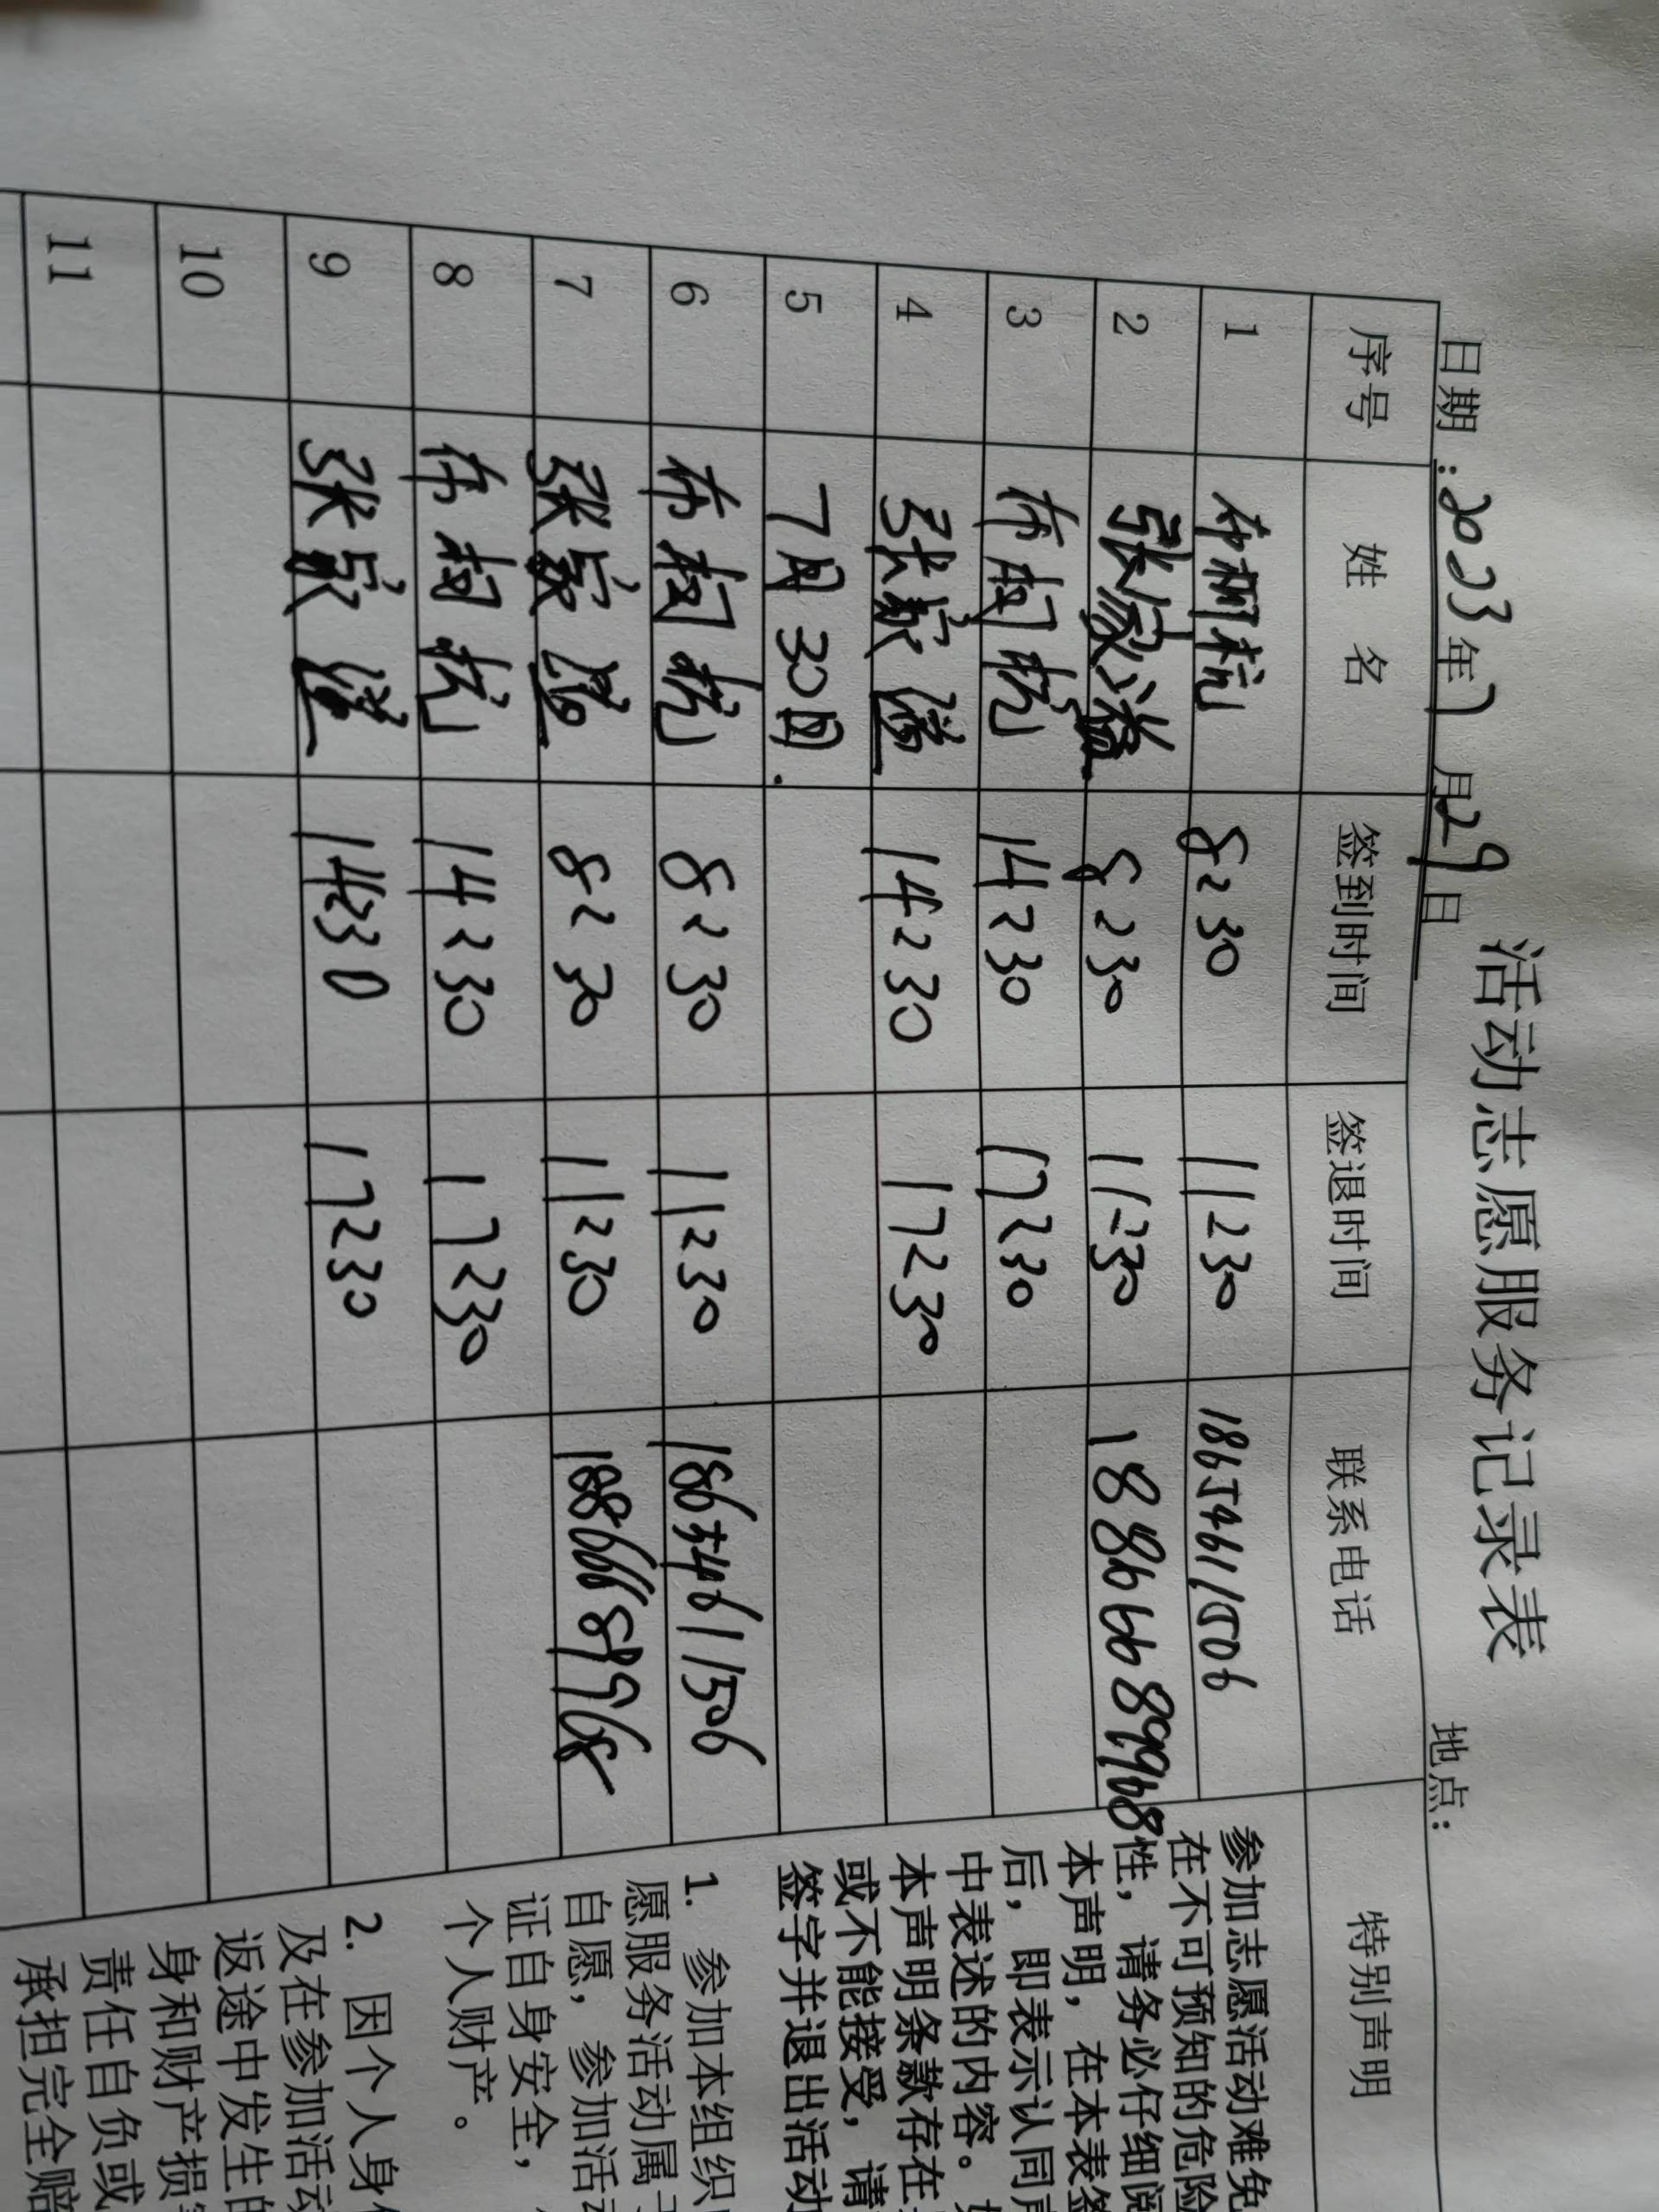 活动志愿服务记录表
日期:2023年7月29日 地点:
序号 姓 名 签到时间 签退时间 联系电话 特别声明
1 布桐杭 8:30 11:30 18654611506
2 张家溢 8:30 11:30 18866689968
3 布桐杭 14:30 17:30
4 张家溢 14:30 17:30
5 7月30日.
6 布桐杭 8:30 11:30 18654611506
7 张家溢 8:30 11:30 18866689968
8 布桐杭 14:30 17:30
9 张家溢 14:30 17:30
10
11
参加志愿活动难免
在不可预知的危险
性，请务必仔细阅
本声明，在本表签
后，即表示认同
中表述的内容。
本声明条款存在
或不能接受，请
签字并退出活动
1. 参加本组织
愿服务活动属
自愿，参加活
证自身安全，
个人财产。
2. 因个人身
及在参加活动
返途中发生的
身和财产损
责任自负或
承担完全赔